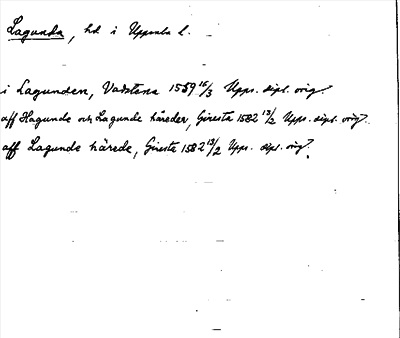 Lagunda, hd i Uppsala l.
i Lagunden, Vadstena 1559 15/3 Upps. dipl. orig.
aff Hagunde och Lagunde häreder, Giresta 1582 13/2 Upps. dipl. orig.
aff Lagunde härede, Giresta 1582 13/2 Upps. dipl. orig.